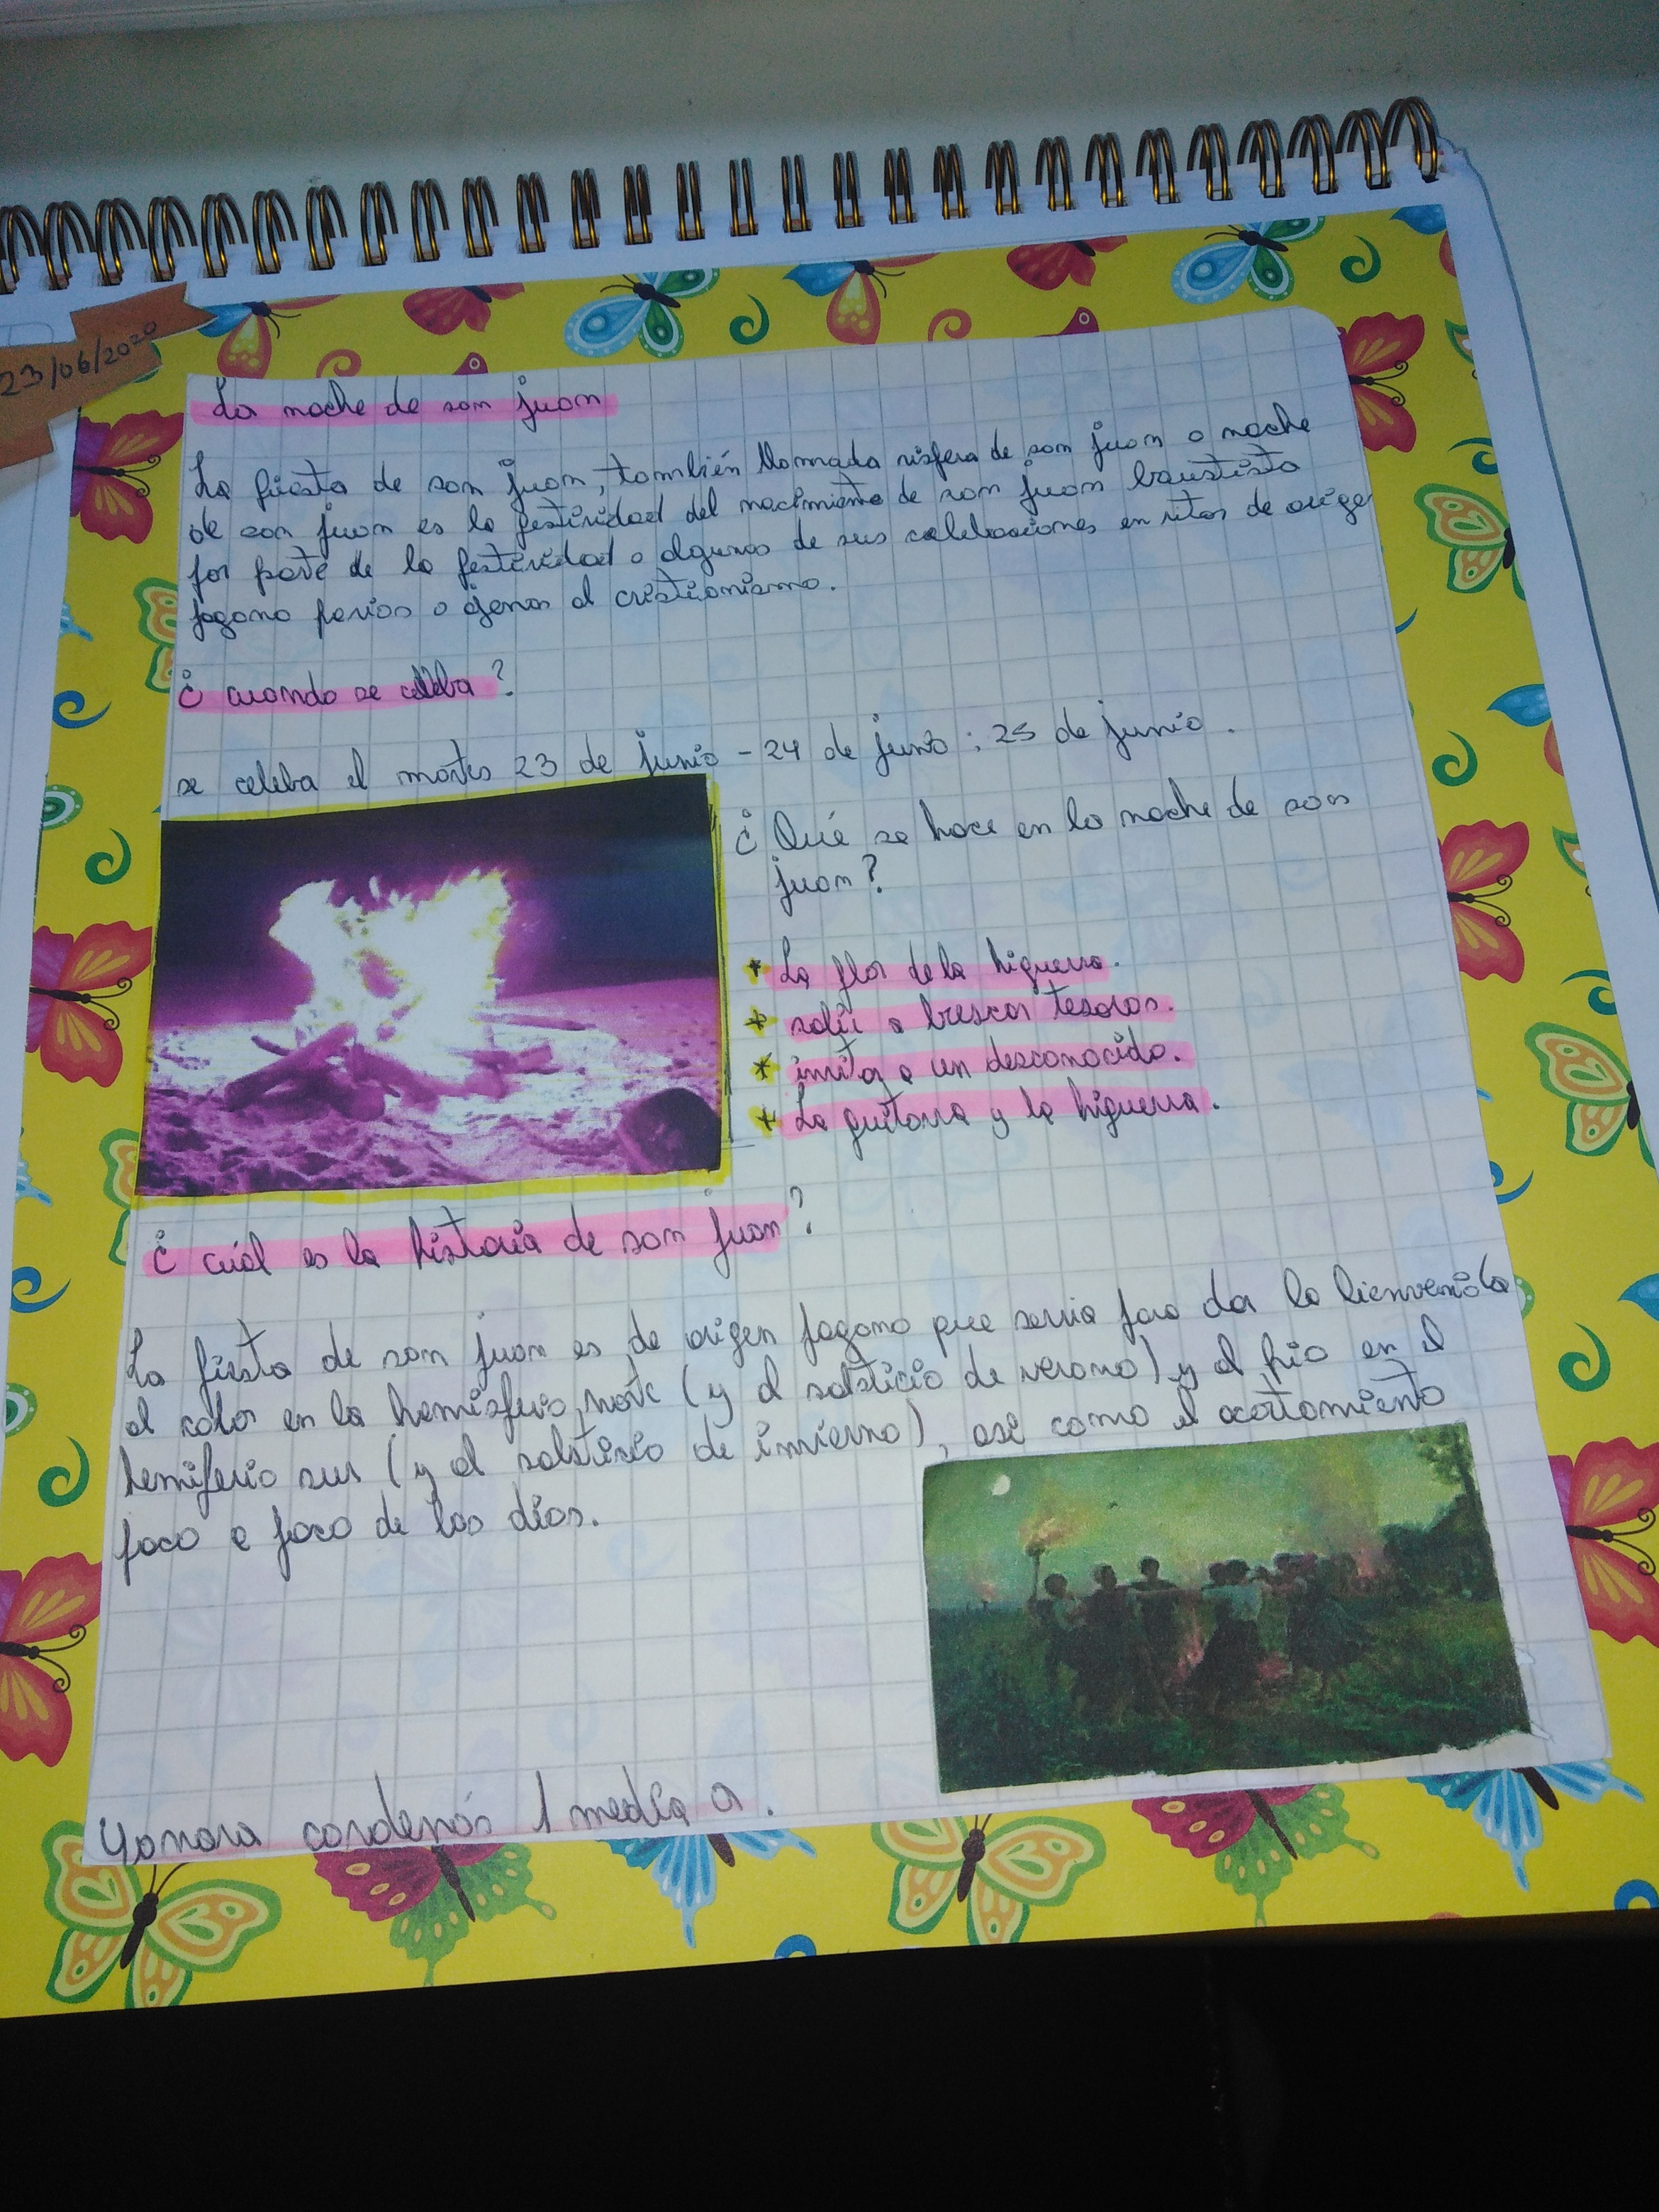 23/06/2020
La noche de san juan
La fiesta de san juan, también llamada vísfera de san juan o noche
de san juan es la festividad del nacimiento de san juan bautista
por parte de la festividad o algunas de sus celebraciones en ritos de orige
pagano pevios o ajenos al cristianismo.
¿ cuando se celeba?
se celeba el martes 23 de junio - 24 de junio ; 25 de junio.
¿ Qué se hace en la noche de san
juan?
* La flor de la higuerra.
* salir a buscar tesoros.
* invitar a un desconocido.
* La guitarra y la higuerra.
¿ cuál es la historia de san juan?
La fiesta de san juan es de origen pagano que servia para dar la bienvenida
al calor en la hemisferio norte (y al solsticio de verano) y al frio en el
hemiferio sur (y al solsticio de invierno), asi como el acortamiento
poco a poco de los días.
Yanara cardenas 1 media a.